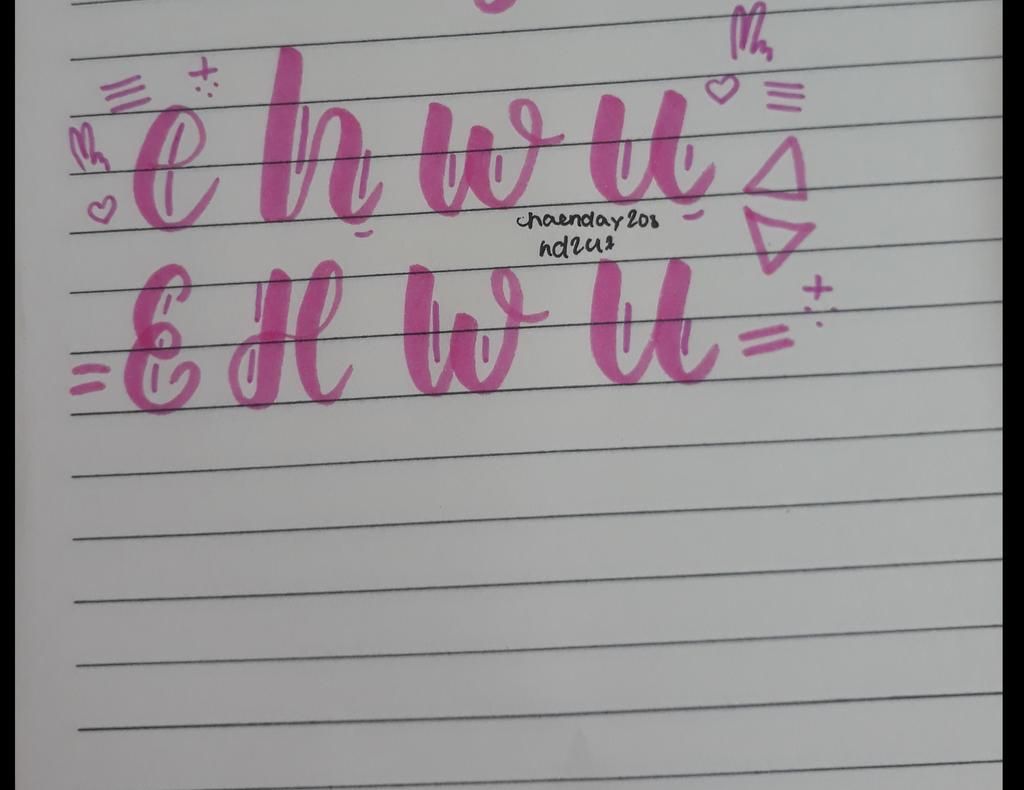 e h w u
chaenday208
nd2u2
E H W U